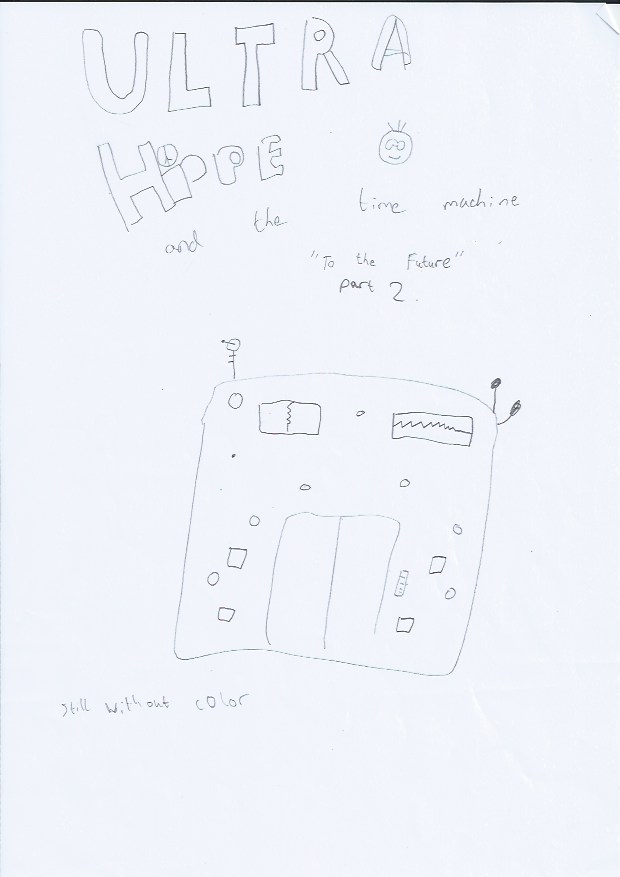 ULTRA
HiPPE
and the time machine
"To the Future"
part 2.
still without color